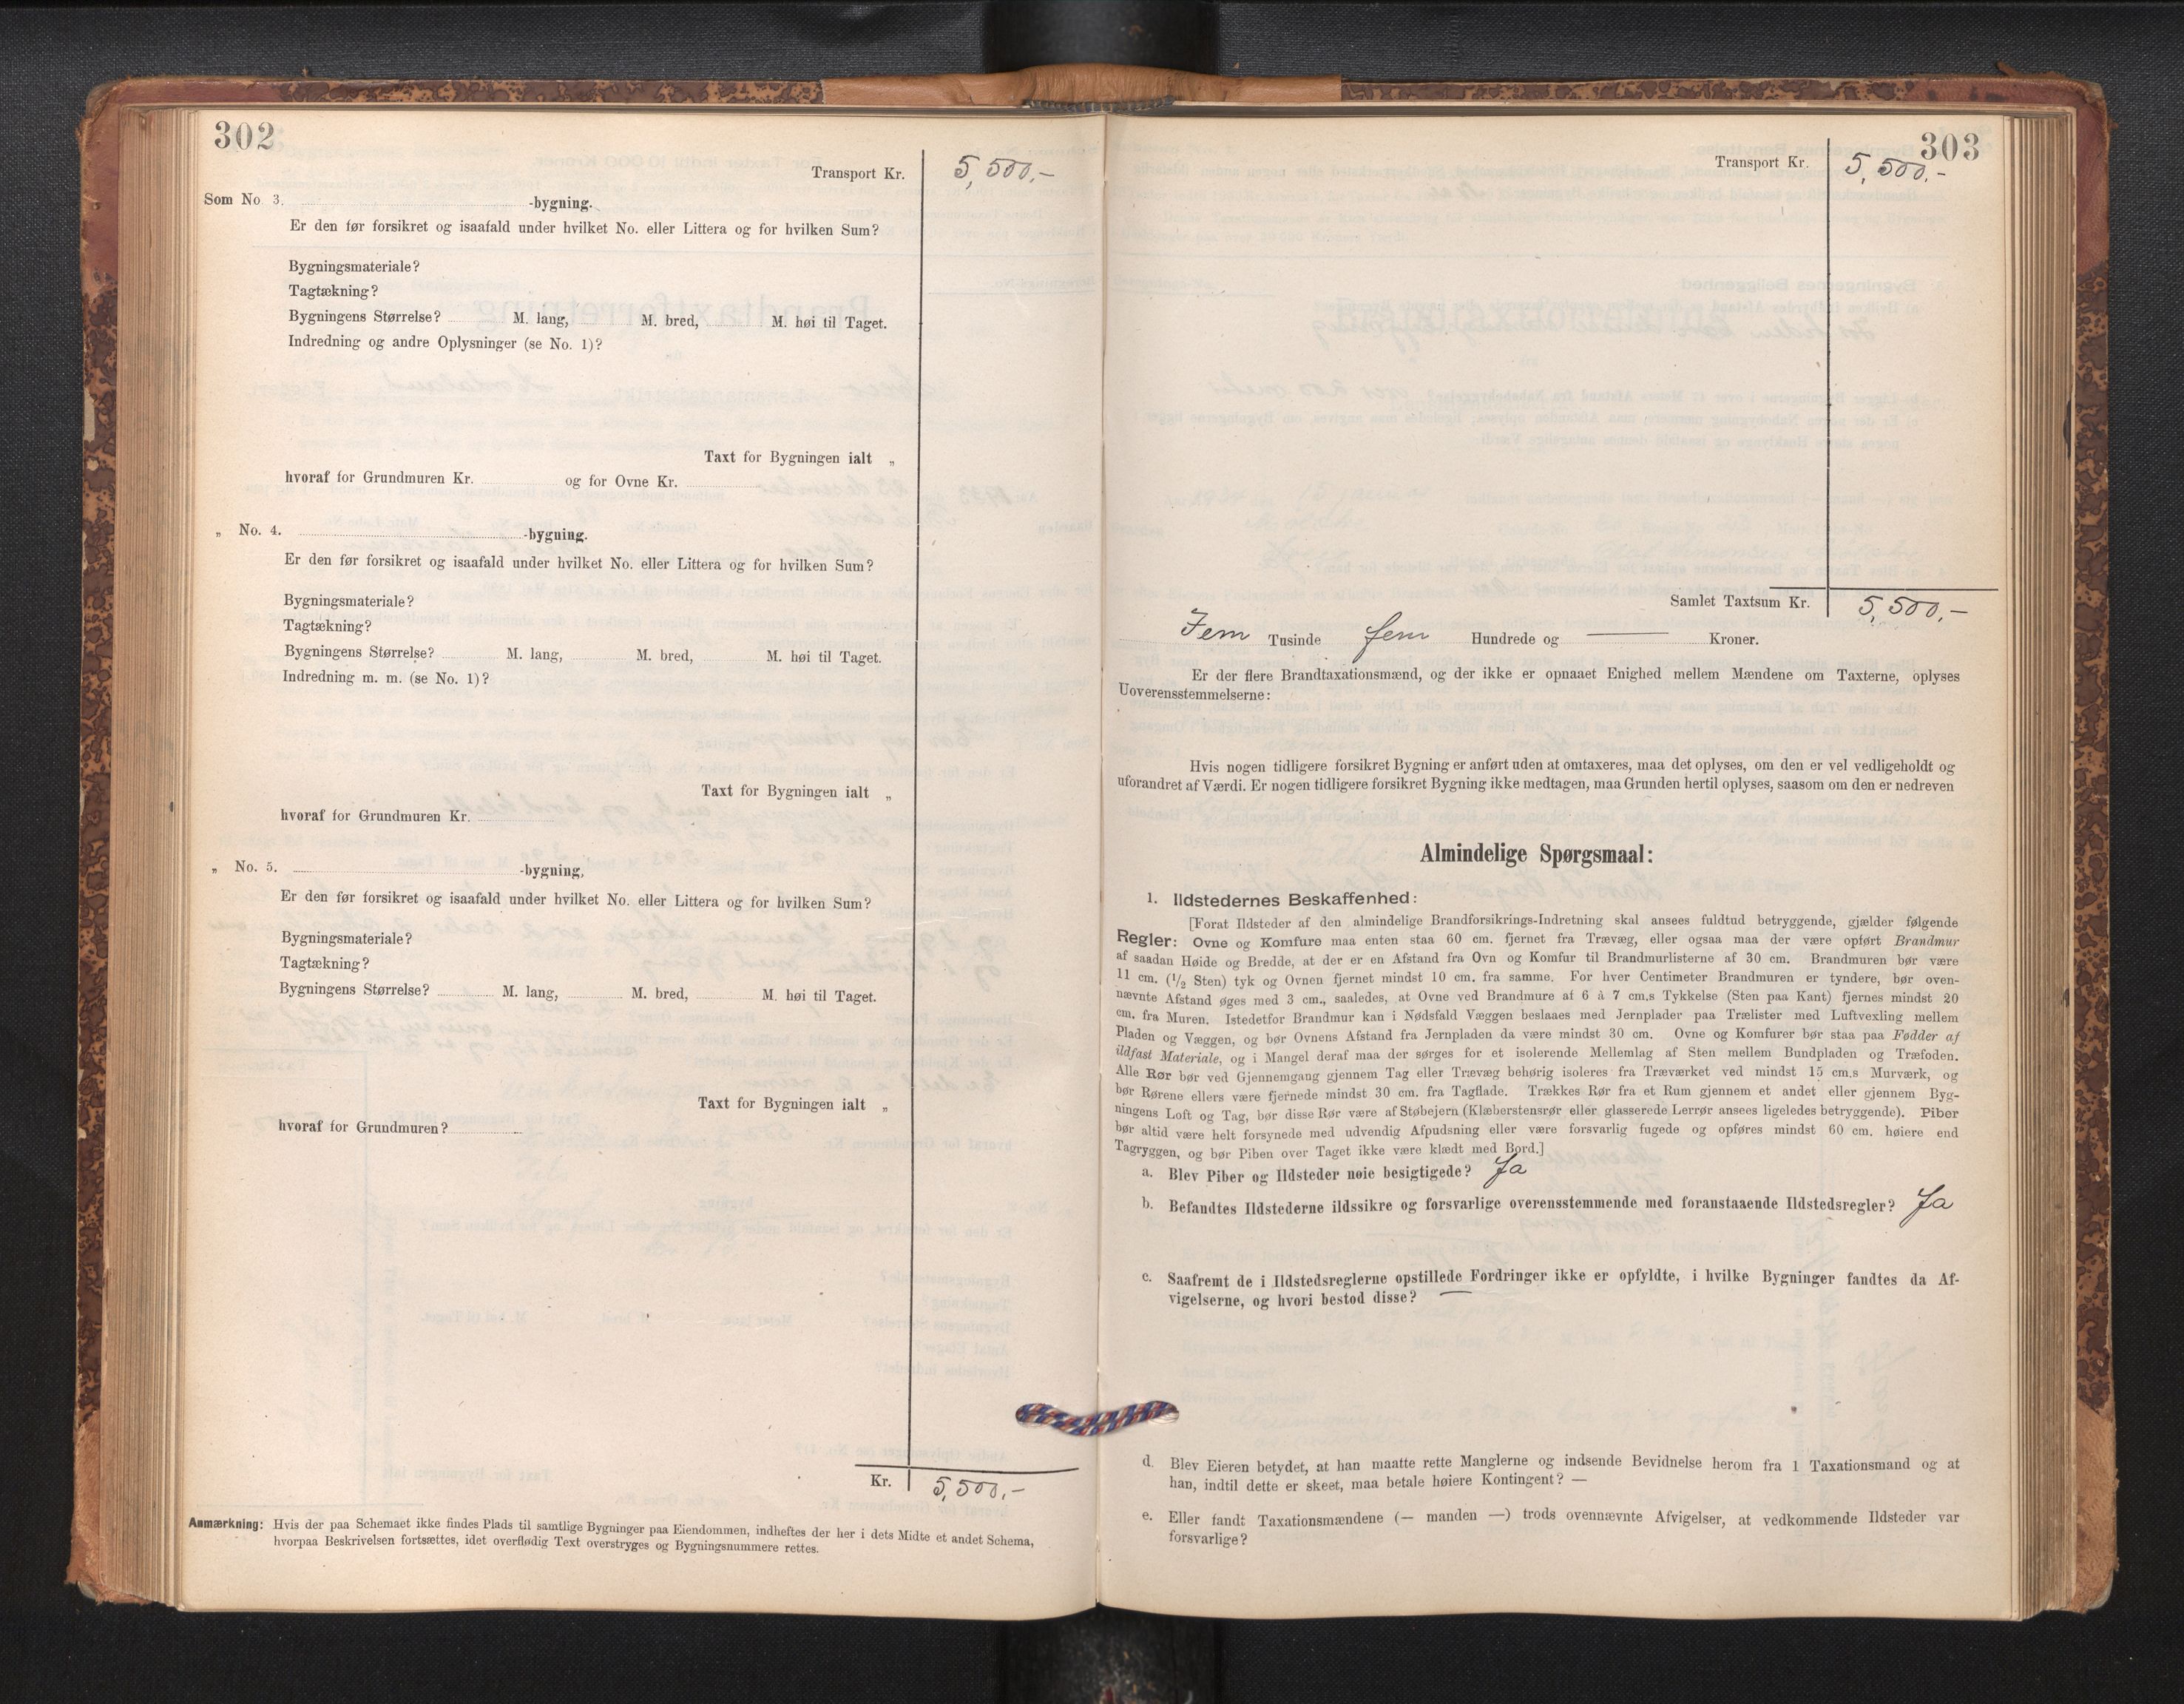 302
Transport Kr. 5,500,-
Som No 3. -bygning.
Er den før forsikret og isaafald under hvilket No. eller Littera og for hvilken Sum?
Bygningsmateriale?
Tagtækning?
Bygningens Størrelse? M. lang, M. bred, M. høi til Taget.
Indredning og andre Oplysninger (se No. 1)?
Taxt for Bygningen ialt „
hvoraf for Grundmuren Kr. og for Ovne Kr.
„ No. 4. -bygning.
Er den før forsikret og isaafald under hvilket No. eller Littera og for hvilken Sum?
Bygningsmateriale?
Tagtækning?
Bygningens Størrelse? M. lang, M. bred, M. høi til Taget.
Indredning m. m. (se No. 1)?
Taxt for Bygningen ialt „
hvoraf for Grundmuren Kr.
„ No. 5. -bygning,
Er den før forsikret og isaafald under hvilket No. eller Littera og for hvilken Sum?
Bygningsmateriale?
Tagtækning?
Bygningens Størrelse? M. lang, M. bred, M. høi til Taget.
Taxt for Bygningen ialt „
hvoraf for Grundmuren?
Kr. 5,500,-
Anmærkning: Hvis der paa Schemaet ikke findes Plads til samtlige Bygninger paa Eiendommen, indheftes der her i dets Midte et andet Schema,
hvorpaa Beskrivelsen fortsættes, idet overflødig Text overstryges og Bygningsnummere rettes.
303
Transport Kr. 5,500,-
Samlet Taxtsum Kr. 5,500,-
Fem Tusinde fem Hundrede og — Kroner.
Er der flere Brandtaxationsmænd, og der ikke er opnaaet Enighed mellem Mændene om Taxterne, oplyses
Uoverensstemmelserne:
Hvis nogen tidligere forsikret Bygning er anført uden at omtaxeres, maa det oplyses, om den er vel vedligeholdt og
uforandret af Værdi. Er nogen tidligere forsikret Bygning ikke medtagen, maa Grunden hertil oplyses, saasom om den er nedreven
Almindelige Spørgsmaal:
1. Ildstedernes Beskaffenhed:
[Forat Ildsteder af den almindelige Brandforsikrings-Indretning skal ansees fuldtud betryggende, gjælder følgende
Regler: Ovne og Komfure maa enten staa 60 cm. fjernet fra Trævæg, eller ogsaa maa der være opført Brandmur
af saadan Høide og Bredde, at der er en Afstand fra Ovn og Komfur til Brandmurlisterne af 30 cm. Brandmuren bør være
11 cm. (1/2 Sten) tyk og Ovnen fjernet mindst 10 cm. fra samme. For hver Centimeter Brandmuren er tyndere, bør oven-
nævnte Afstand øges med 3 cm., saaledes, at Ovne ved Brandmure af 6 à 7 cm.s Tykkelse (Sten paa Kant) fjernes mindst 20
cm. fra Muren. Istedetfor Brandmur kan i Nødsfald Væggen beslaaes med Jernplader paa Trælister med Luftvexling mellem
Pladen og Væggen, og bør Ovnens Afstand fra Jernpladen da være mindst 30 cm. Ovne og Komfurer bør staa paa Fødder af
ildfast Materiale, og i Mangel deraf maa der sørges for et isolerende Mellemlag af Sten mellem Bundpladen og Træfoden.
Alle Rør bør ved Gjennemgang gjennem Tag eller Trævæg behørig isoleres fra Træværket ved mindst 15 cm.s Murværk, og
bør Rørene ellers være fjernede mindst 30 cm. fra Tagflade. Trækkes Rør fra et Rum gjennem et andet eller gjennem Byg-
ningens Loft og Tag, bør disse Rør være af Støbejern (Klæberstensrør eller glasserede Lerrør ansees ligeledes betryggende). Piber
bør altid være helt forsynede med udvendig Afpudsning eller være forsvarlig fugede og opføres mindst 60 cm. høiere end
Tagryggen, og bør Piben over Taget ikke være klædt med Bord.]
a. Blev Piber og Ildsteder nøie besigtigede? Ja
b. Befandtes Ildstederne ildssikre og forsvarlige overensstemmende med foranstaaende Ildstedsregler? Ja
c. Saafremt de i Ildstedsreglerne opstillede Fordringer ikke er opfyldte, i hvilke Bygninger fandtes da Af-
vigelserne, og hvori bestod disse? —
d. Blev Eieren betydet, at han maatte rette Manglerne og indsende Bevidnelse herom fra 1 Taxationsmand og at
han, indtil dette er skeet, maa betale høiere Kontingent? —
e. Eller fandt Taxationsmændene (— manden —) trods ovennævnte Afvigelser, at vedkommende Ildsteder var
forsvarlige?